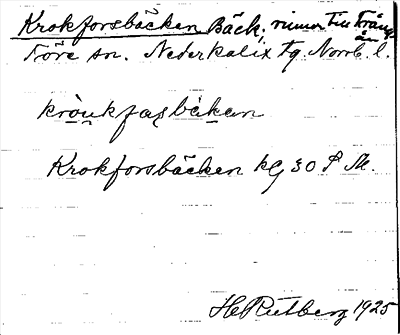 Krokforsbäcken Bäck; rinner till Trång
ån
Töre sn. Nederkalix tg. Norrb. l.
Krokforsbäcken kg 30 S M.
H C Rutberg 1925